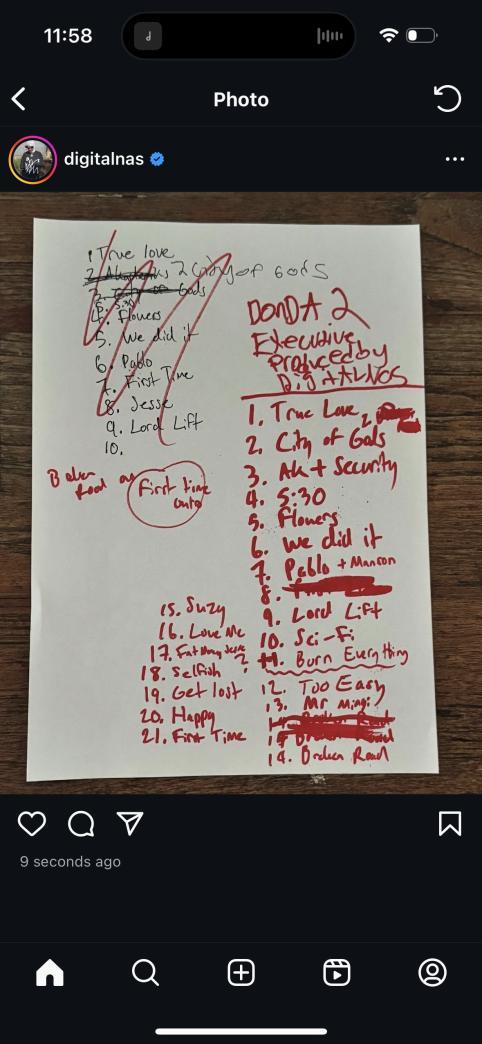 11:58
Photo
digitalnas
1. True love
2. City of Gods
5:30
4. Flowers
5. We did it
6. Pablo
7. First Time
8. Jesse
9. Lord Lift
10.
Broken Road on
First time
DONDA 2
Executive
Produced by
DigitALNAS
1. True Love
2. City of Gods
3. AK + Security
4. 5:30
5. Flowers
6. We did it
7. Pablo + Manson
8.
9. Lord Lift
10. Sci-Fi
11. Burn Everything
12. Too Easy
13. Mr Migi
14. Broken Road
15. Suzy
16. Love Me
17.
18. Selfish ?
19. Get lost
20. Happy
21. First Time
9 seconds ago